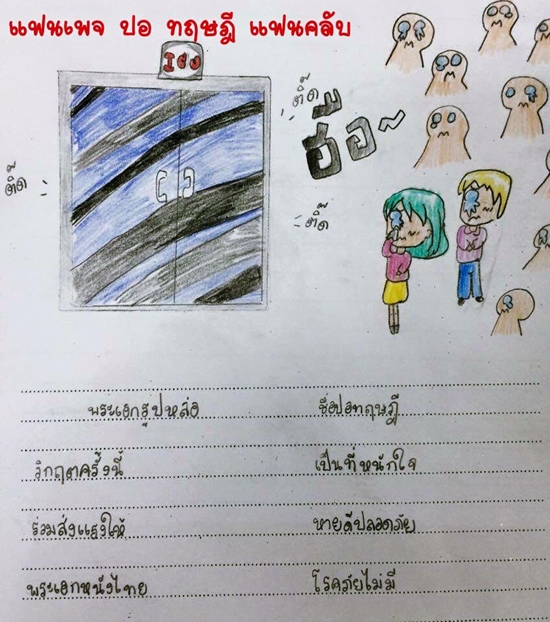 แฟนเพจ ปอ ทฤษฎี แฟนคลับ
ไอซียู
ติ๊ด
ฮือ~
ติ๊ด
ติ๊ด
พระเอกรูปหล่อ ชื่อปอทฤษฎี
วิกฤตครั้งนี้ เป็นที่หนักใจ
ร่วมส่งแรงให้ หายดีปลอดภัย
พระเอกหนังไทย โรคภัยไม่มี